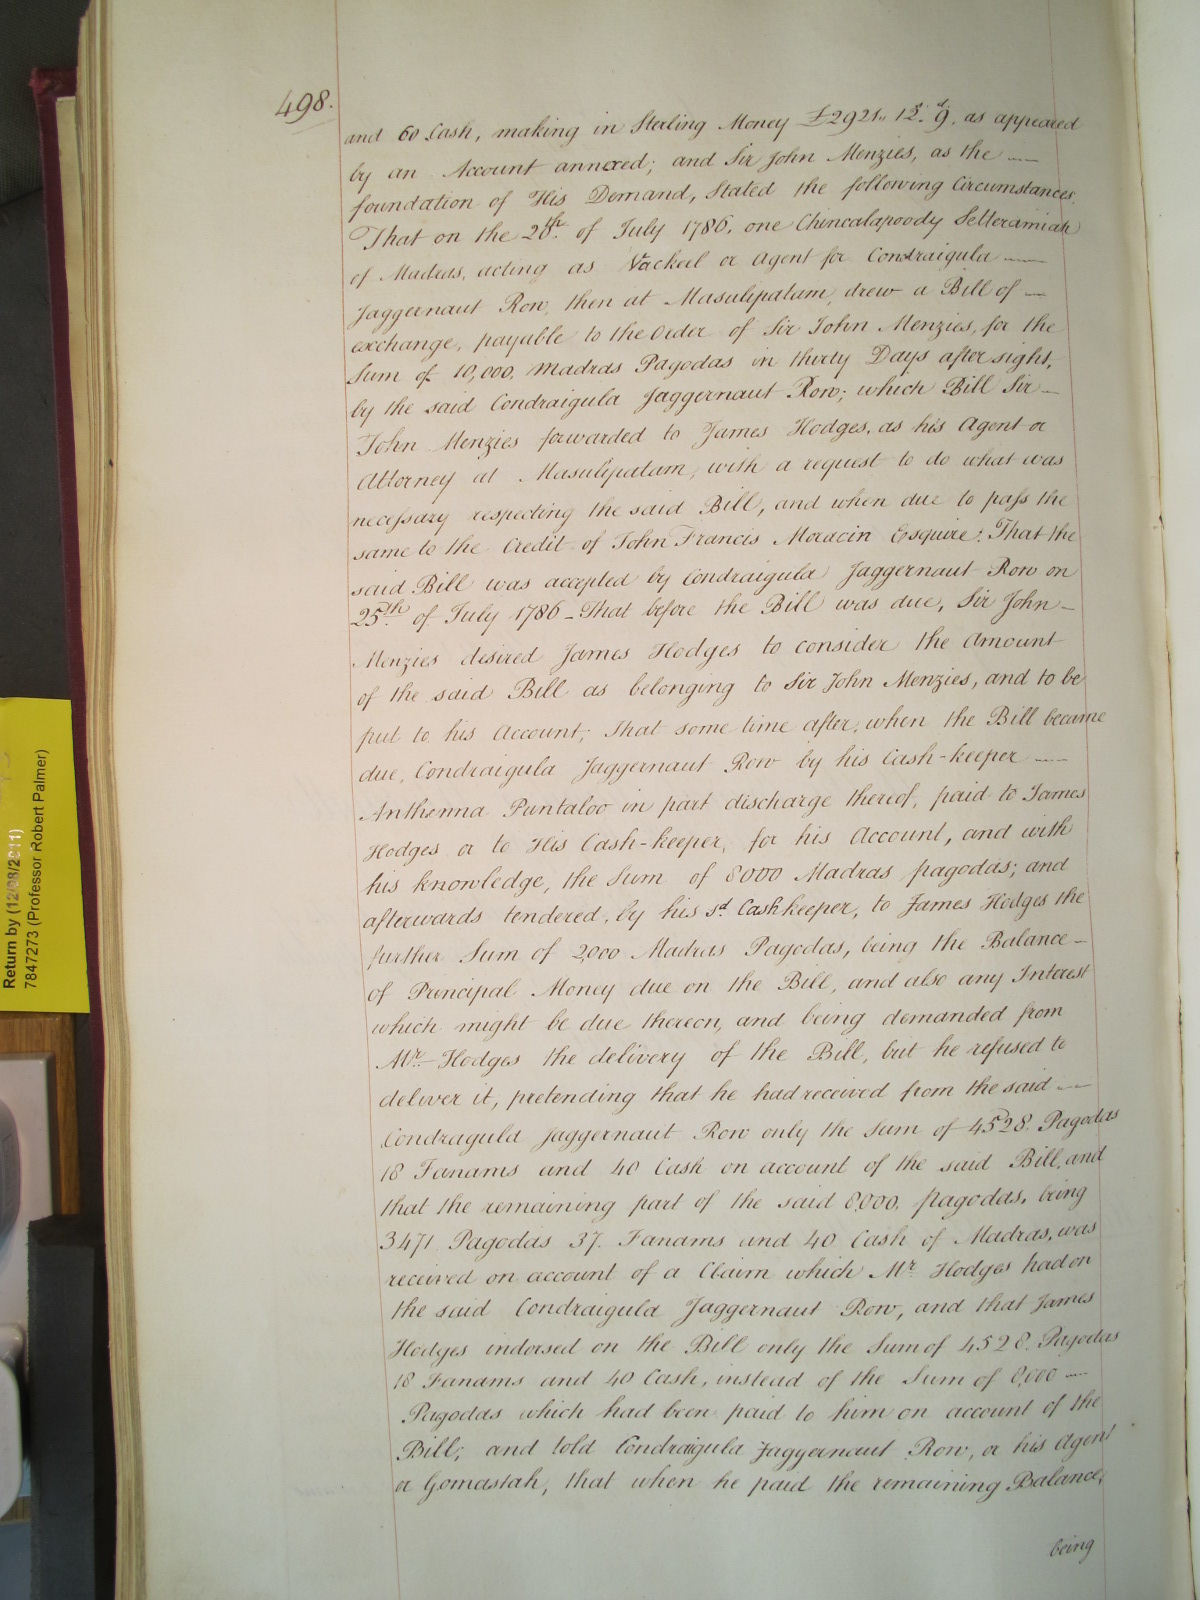 498.
and 60 Cash, making in Sterling Money £2921,, 12s. 9d. as appeared
by an Account annexed; and Sir John Menzies, as the
foundation of His Demand, Stated the following Circumstances.
That on the 20th. of July 1786, one Chincalapoody Setteramiah
of Madras, acting as Vackeel or Agent for Condraigula
Jaggernaut Row, then at Masulipatam, drew a Bill of
exchange, payable to the Order of Sir John Menzies, for the
Sum of 10,000, Madras Pagodas in thirty Days after sight,
by the said Condraigula Jaggernaut Row; which Bill Sir
John Menzies forwarded to James Hodges, as his Agent or
Attorney at Masulipatam, with a request to do what was
necessary respecting the said Bill, and when due to pass the
same to the Credit of John Francis Moracin Esquire: That the
said Bill was accepted by Condraigula Jaggernaut Row on
25th. of July 1786 - That before the Bill was due, Sir John
Menzies desired James Hodges to consider the Amount
of the said Bill as belonging to Sir John Menzies, and to be
put to his Account; That some time after, when the Bill became
due, Condraigula Jaggernaut Row by his Cash-keeper
Anthenna Puntaloo in part discharge thereof, paid to James
Hodges or to His Cash-keeper, for his Account, and with
his knowledge, the Sum of 8000 Madras pagodas; and
afterwards tendered, by his sd. Cashkeeper, to James Hodges the
further Sum of 2,000 Madras Pagodas, being the Balance
of Principal Money due on the Bill, and also any Interest
which might be due thereon, and being demanded from
Mr. Hodges the delivery of the Bill, but he refused to
deliver it, pretending that he had received from the said
Condragula Jaggernaut Row only the Sum of 4528. Pagodas
18 Fanams and 40 Cash on account of the said Bill, and
that the remaining part of the said 8,000, pagodas, being
3471 Pagodas 37. Fanams and 40 Cash of Madras, was
received on account of a Claim which Mr. Hodges had on
the said Condraigula Jaggernaut Row, and that James
Hodges indorsed on the Bill only the Sum of 4528. Pagodas
18 Fanams and 40 Cash, instead of the Sum of 8,000
Pagodas which had been paid to him on account of the
Bill; and told Condraigula Jaggernaut Row, or his Agent
or Gomastah, that when he paid the remaining Balance,
being
Return by (12/08/2011)
7847273 (Professor Robert Palmer)